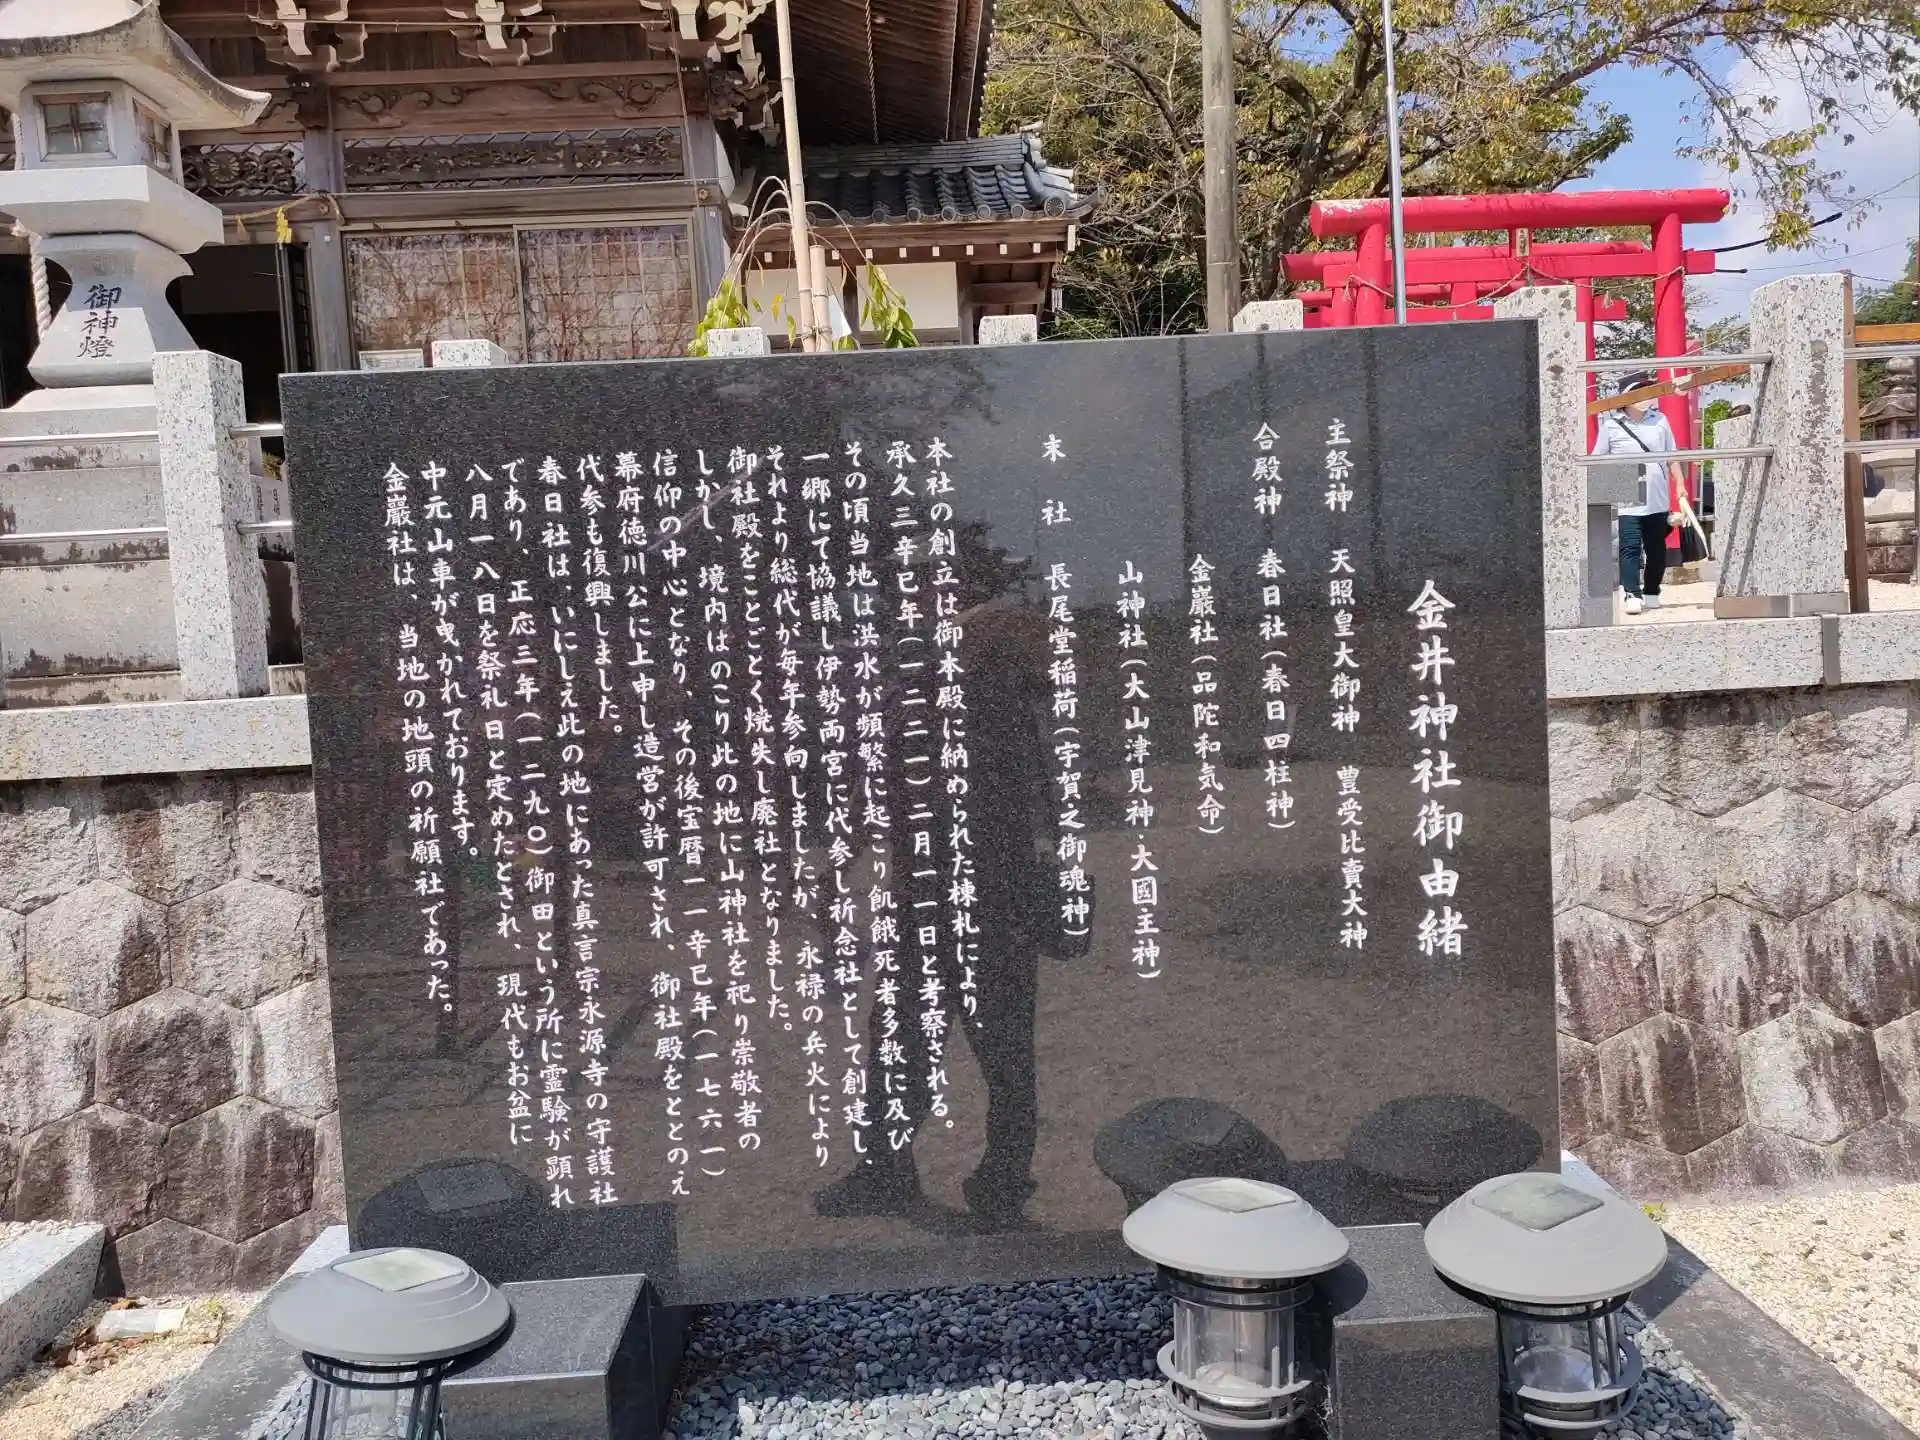 金井神社御由緒
主祭神　天照皇大御神　豊受比賣大神
合殿神　春日社（春日四柱神）
金巖社（品陀和気命）
山神社（大山津見神・大國主神）
末　社　長尾堂稲荷（宇賀之御魂神）
本社の創立は御本殿に納められた棟札により、
承久三辛巳年（一二二一）二月一一日と考察される。
その頃当地は洪水が頻繁に起こり飢餓死者多数に及び
一郷にて協議し伊勢両宮に代参し祈念社として創建し、
それより総代が毎年参向しましたが、永禄の兵火により
御社殿をことごとく焼失し廃社となりました。
しかし、境内はのこり此の地に山神社を祀り崇敬者の
信仰の中心となり、その後宝暦一一辛巳年（一七六一）
幕府徳川公に上申し造営が許可され、御社殿をととのえ
代参も復興しました。
春日社は、いにしえ此の地にあった真言宗永源寺の守護社
であり、正応三年（一二九〇）御田という所に霊験が顕れ
八月一八日を祭礼日と定めたとされ、現代もお盆に
中元山車が曳かれております。
金巖社は、当地の地頭の祈願社であった。
御神燈